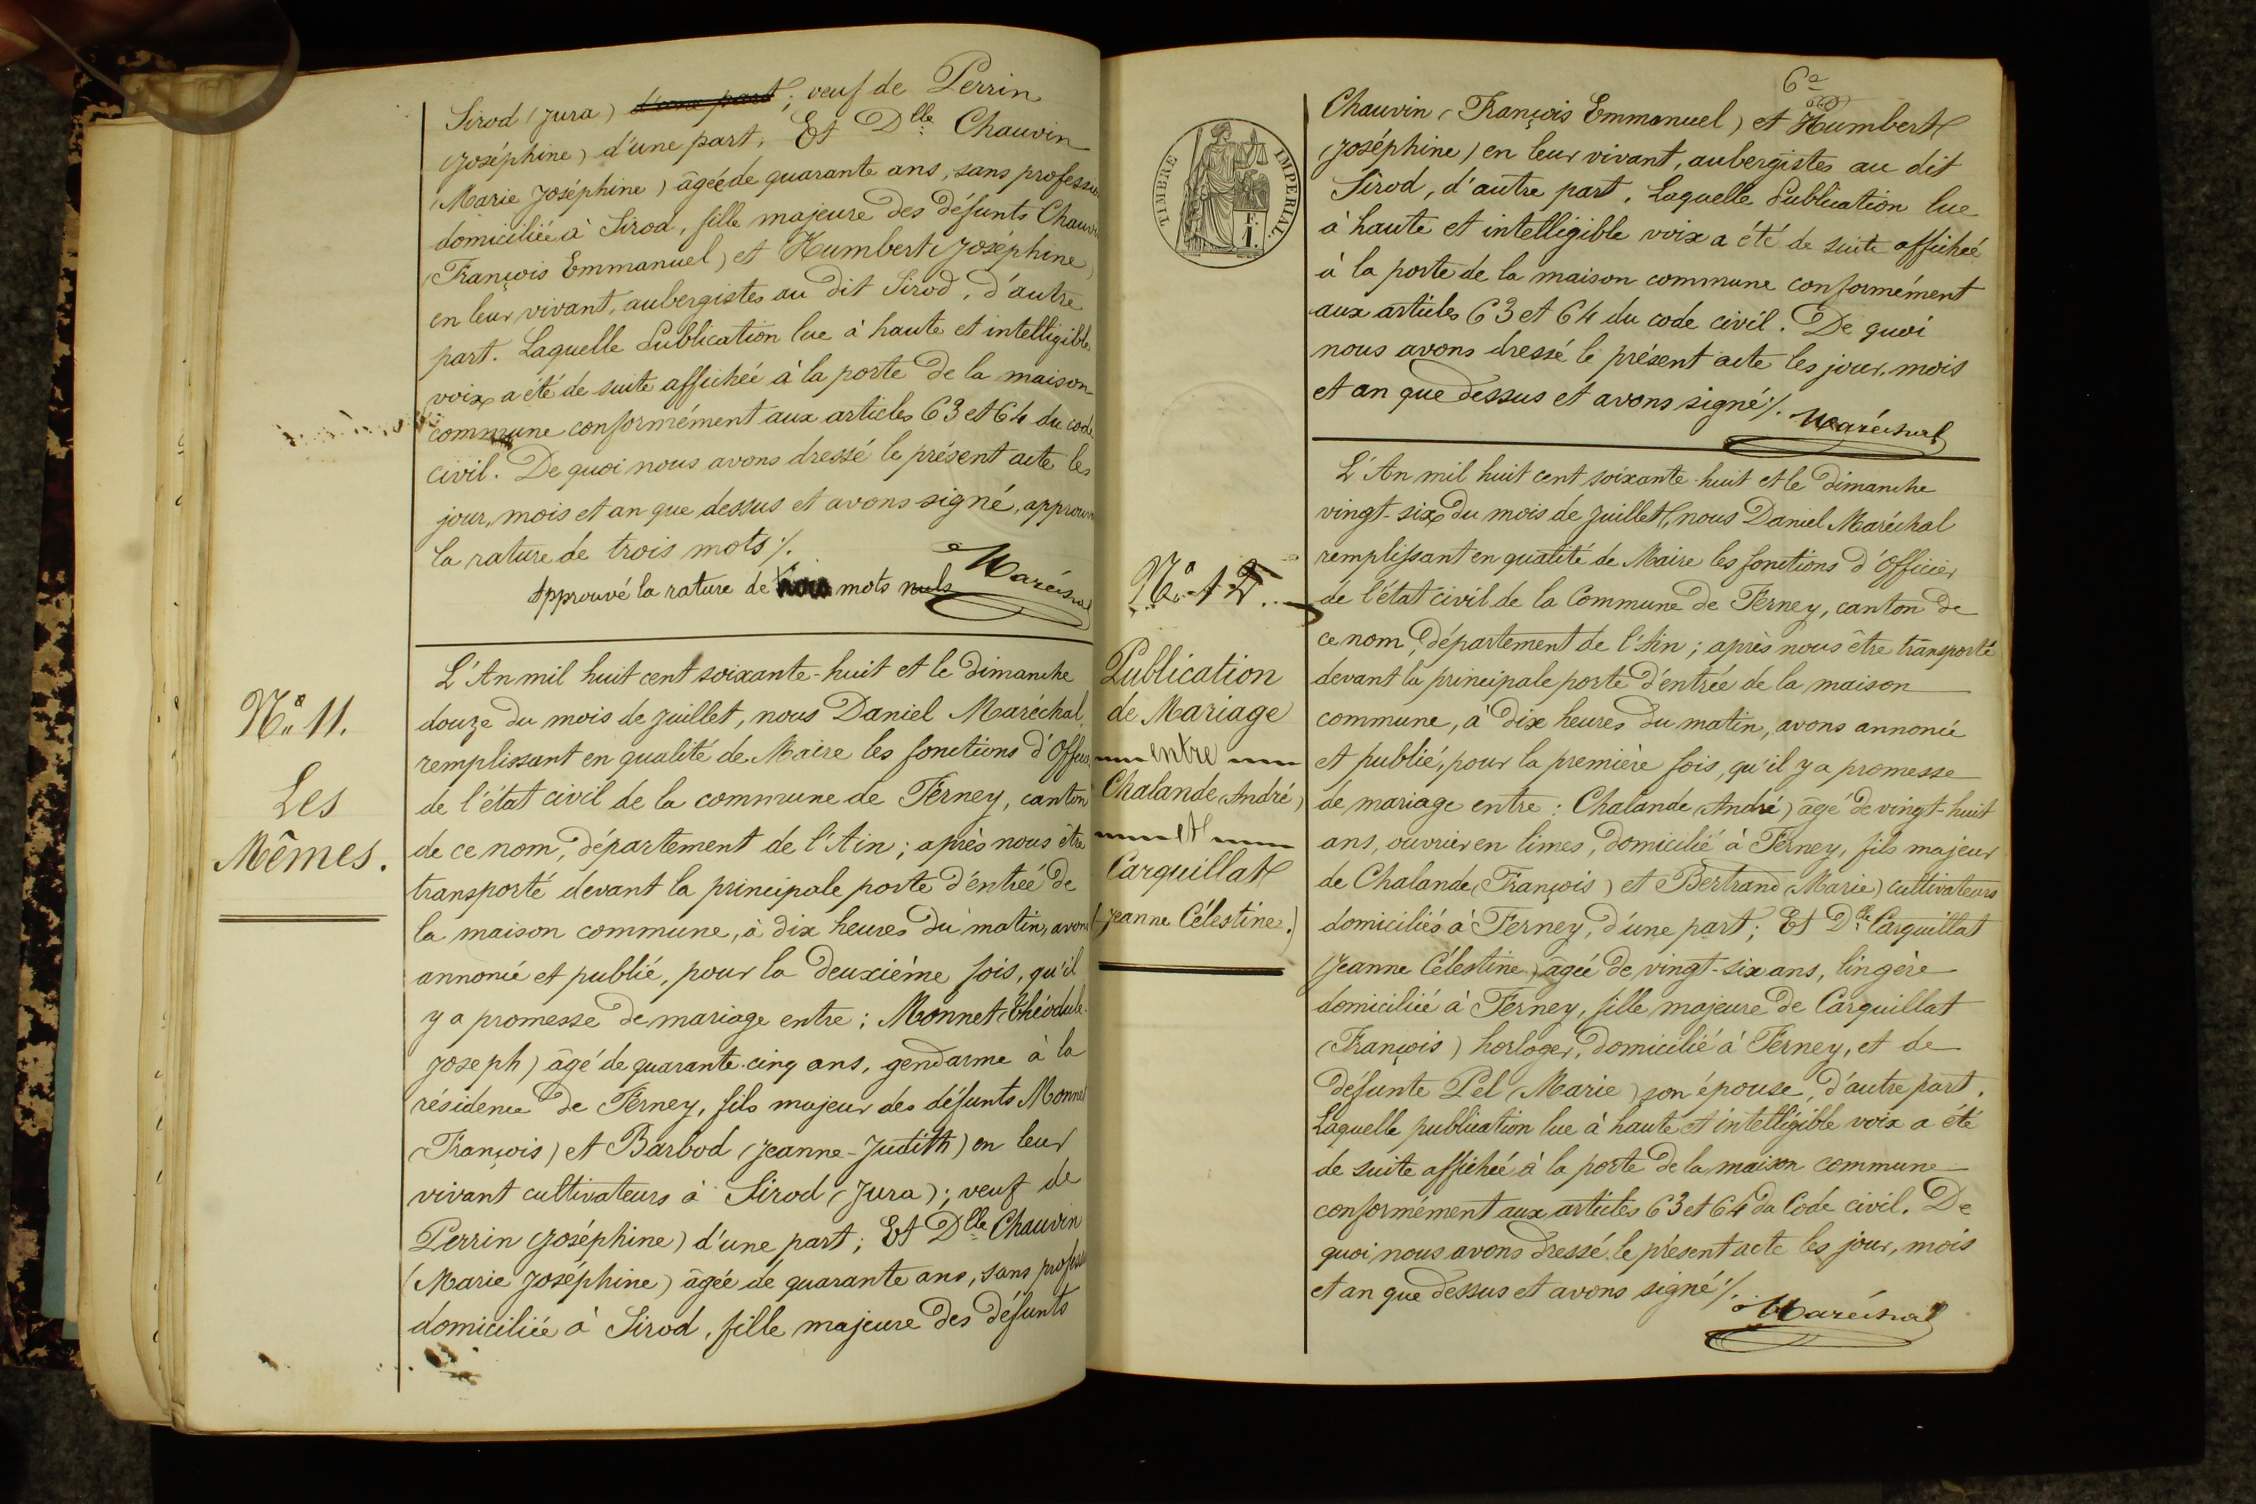 Sirod (Jura) d'une part; veuf de Perrin
(Joséphine) d'une part, Et Dlle Chauvin
(Marie Joséphine) âgée de quarante ans, sans profession
domiciliée à Sirod, fille majeure des défunts Chauvin
(François Emmanuel) et Humbert (Joséphine)
en leur vivant, aubergistes au dit Sirod, d'autre
part. Laquelle Publication lue à haute et intelligible
voix a été de suite affichée à la porte de la maison
commune conformément aux articles 63 et 64 du code
civil. De quoi nous avons dressé le présent acte les
jour, mois et an que dessus et avons signé, approuvé
la rature de trois mots ./.
Maréchal
Approuvé la rature de mots nuls
Nº 11.
Les
Mêmes.
L'An mil huit cent soixante-huit et le Dimanche
douze du mois de Juillet, nous Daniel Maréchal,
remplissant en qualité de Maire les fonctions d'Officier
de l'état civil de la commune de Ferney, canton
de ce nom, département de l'Ain; après nous être
transporté devant la principale porte d'entrée de
la maison commune, à dix heures du matin, avons
annoncé et publié, pour la deuxième fois, qu'il
y a promesse de mariage entre: Monnet (Théodule
Joseph) âgé de quarante-cinq ans, gendarme à la
résidence de Ferney, fils majeur des défunts Monnet
(François) et Barbod (Jeanne-Judith) en leur
vivant cultivateurs à Sirod (Jura); veuf de
Perrin (Joséphine) d'une part; Et Dlle Chauvin
(Marie Joséphine) âgée de quarante ans, sans profession
domiciliée à Sirod, fille majeure des défunts
6e
TIMBRE IMPERIAL.
E.
1.
Chauvin (François Emmanuel) et Humbert
(Joséphine) en leur vivant, aubergistes au dit
Sirod, d'autre part. Laquelle Publication lue
à haute et intelligible voix a été de suite affichée
à la porte de la maison commune conformément
aux articles 63 et 64 du code civil. De quoi
nous avons dressé le présent acte les jour, mois
et an que dessus et avons signé ./.
Maréchal
Nº 12.
Publication
de Mariage
entre
Chalande (André)
et
Carquillat
(Jeanne Célestine.)
L'An mil huit cent soixante-huit et le Dimanche
vingt-six du mois de Juillet, nous Daniel Maréchal
remplissant en qualité de Maire les fonctions d'Officier
de l'état civil de la Commune de Ferney, canton de
ce nom, département de l'Ain; après nous être transporté
devant la principale porte d'entrée de la maison
commune, à dix heures du matin, avons annoncé
et publié, pour la première fois, qu'il y a promesse
de mariage entre: Chalande (André) âgé de vingt-huit
ans, ouvrier en limes, domicilié à Ferney, fils majeur
de Chalande (François) et Bertrand (Marie) cultivateurs
domiciliés à Ferney, d'une part; Et Dlle Carquillat
(Jeanne Célestine) âgée de vingt-six ans, lingère
domiciliée à Ferney, fille majeure de Carquillat
(François) horloger, domicilié à Ferney, et de
défunte Pel (Marie) son épouse, d'autre part.
Laquelle publication lue à haute et intelligible voix a été
de suite affichée à la porte de la maison commune
conformément aux articles 63 et 64 du Code civil. De
quoi nous avons dressé le présent acte les jour, mois
et an que dessus et avons signé ./.
Maréchal